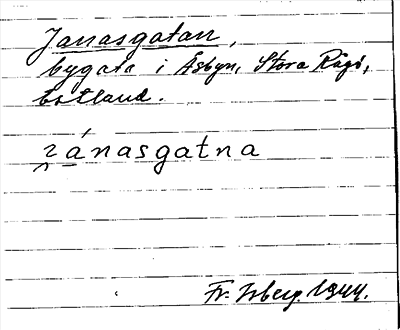 Janasgatan,
bygata i Åsbyn, Stora Rågö,
Estland.
ꞇánasgatna
Fr. Isberg 1944.